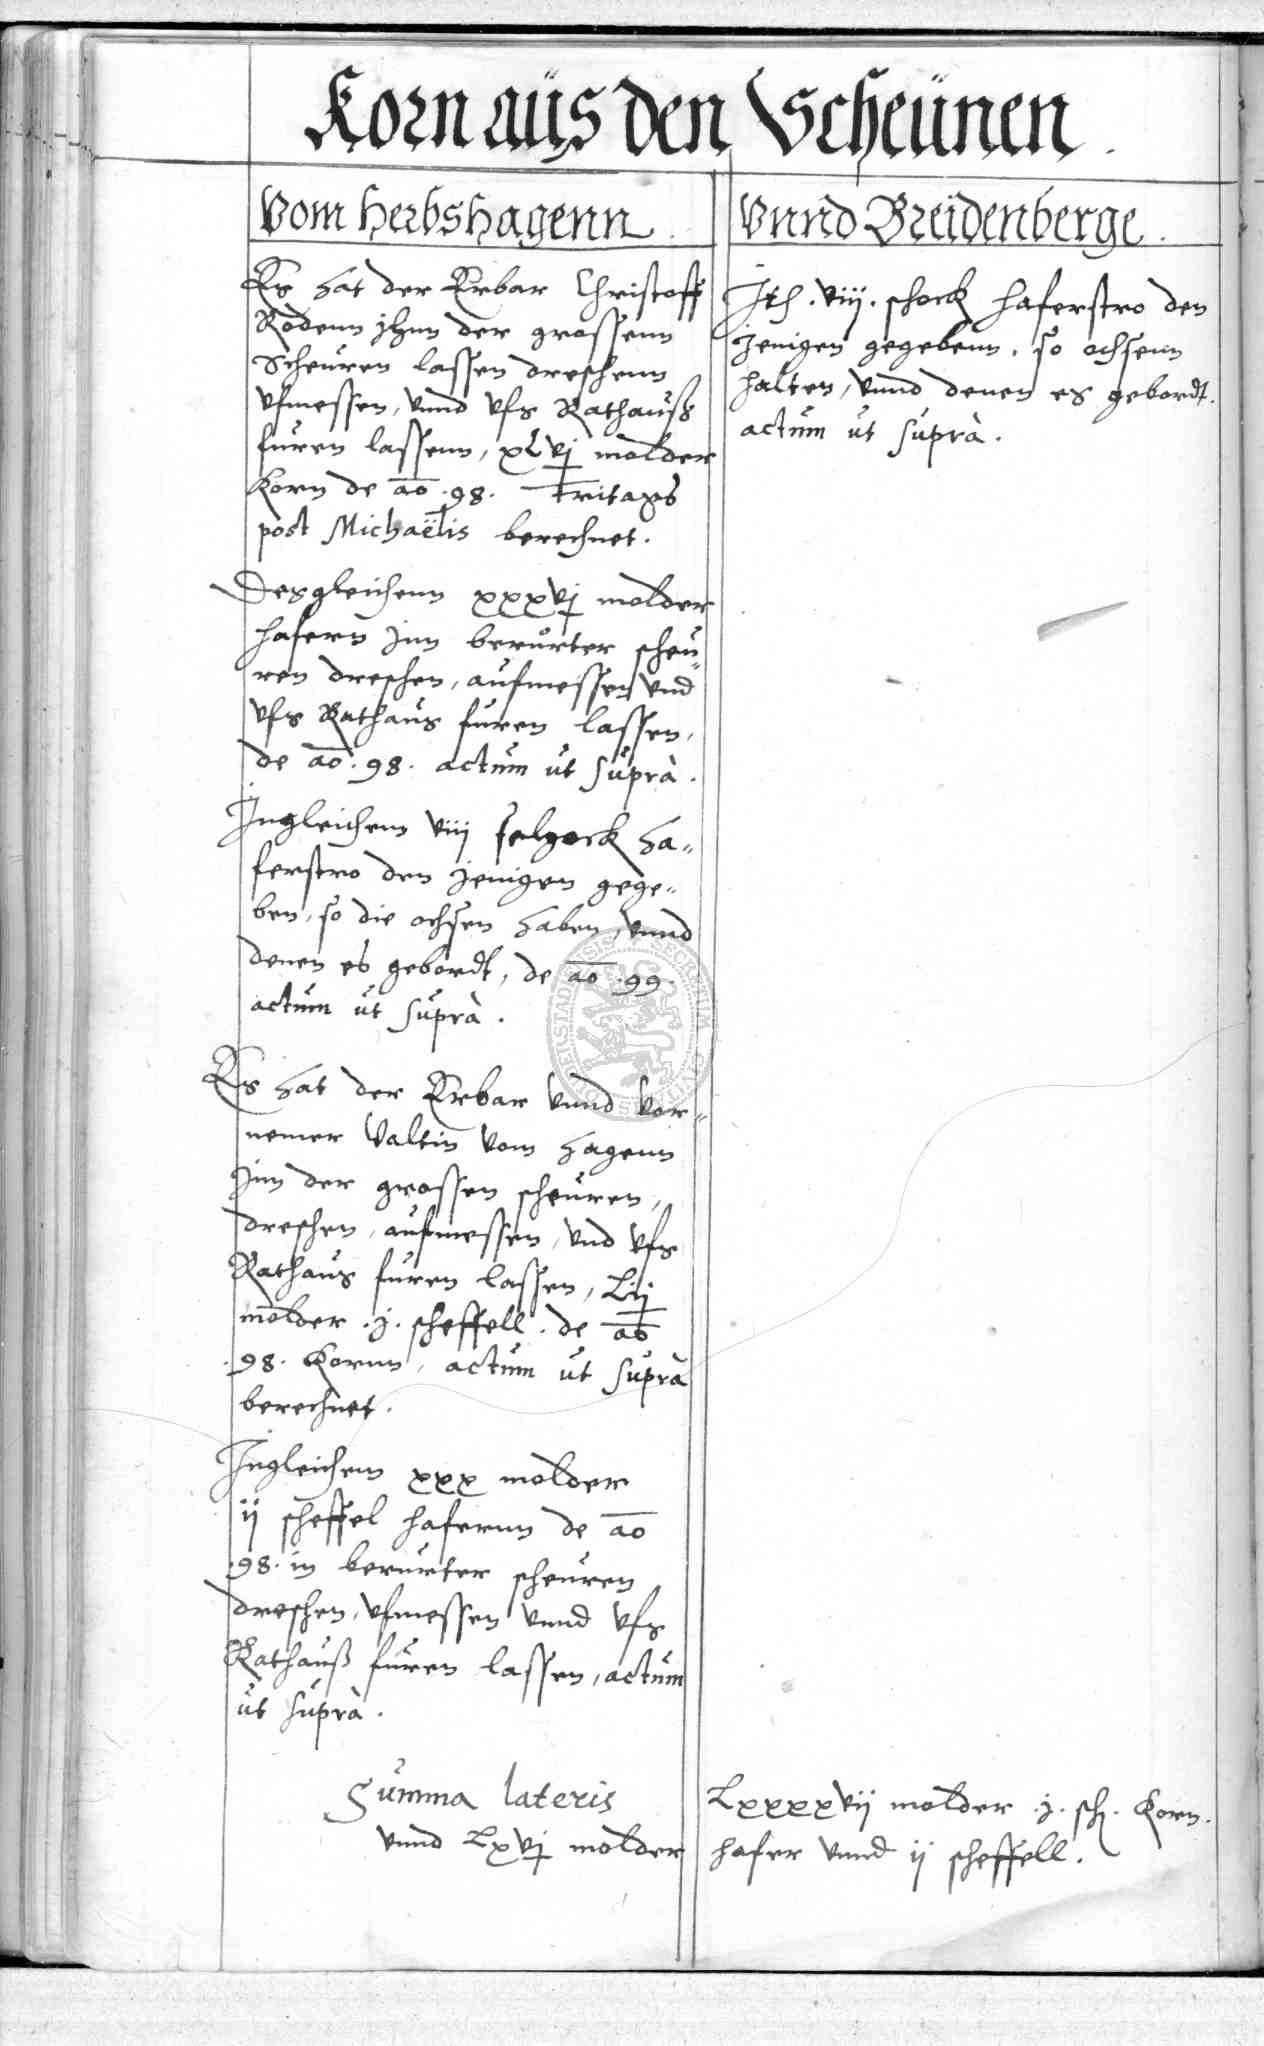 Korn aüs den Scheünen.
Vom Herbshagenn
Es hat der Erbar Christoff
Rodenn jhnn der grossenn
Scheuren lassen dreschenn
vfmessen, vnnd vfs Rathauß
furen lassenn, xLvj molder
Korn de ao .98. 
post Michaëlis berechnet.
Desgleichenn xxxvj molder
hafern jnn berurter scheu„
ren dreschen, aufmessen vnd
vfs Rathaus furen lassen,
de ao .98. actum ut suprà.
Ingleichenn viij schock ha„
ferstro den jenigen gege„
ben, so die ochsen haben, vnnd
denen es gebordt, de ao .99.
actum ut suprà.
Es hat der Erbar vnnd vor„
nemer Valtin vom Hagenn
jnn der grossen scheuren,
dreschen, aufmessen, vnd vfs
Rathaus furen lassen, Lij
molder .j. scheffell. de ao
.98. Kornn, actum ut suprà
berechnet.
Ingleichenn xxx molder
ij scheffel hafernn de ao
.98. in berurter scheuren
dreschen, vfmessen vnnd vfs
Rathauß furen lassen, actum
ut suprà.
Vnnd Breidenberge.
.viij. schock haferstro den
jenigen gegebenn, so ochsenn
halten, vnnd denen es gebordt.
actum ut suprà.
Summa lateris Lxxxxvij molder .j. sch. Korn.
vnnd Lxvj molder hafer vnnd ij scheffell.